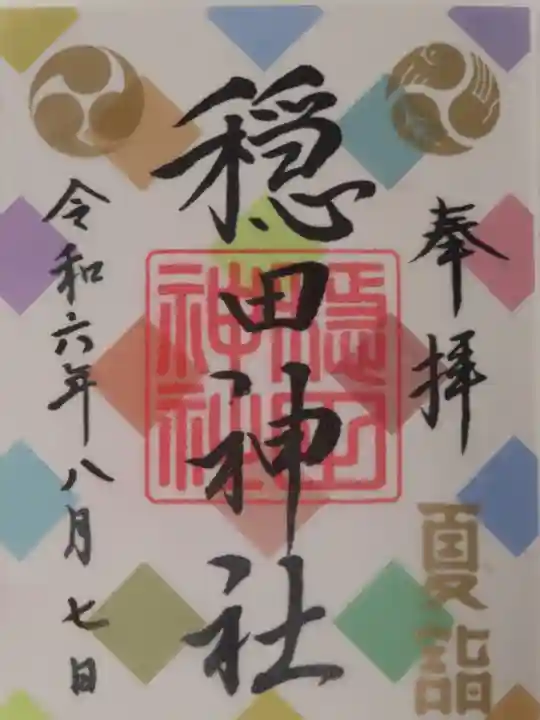 奉拝
夏詣
穏田神社
穏田神社
令和六年八月七日